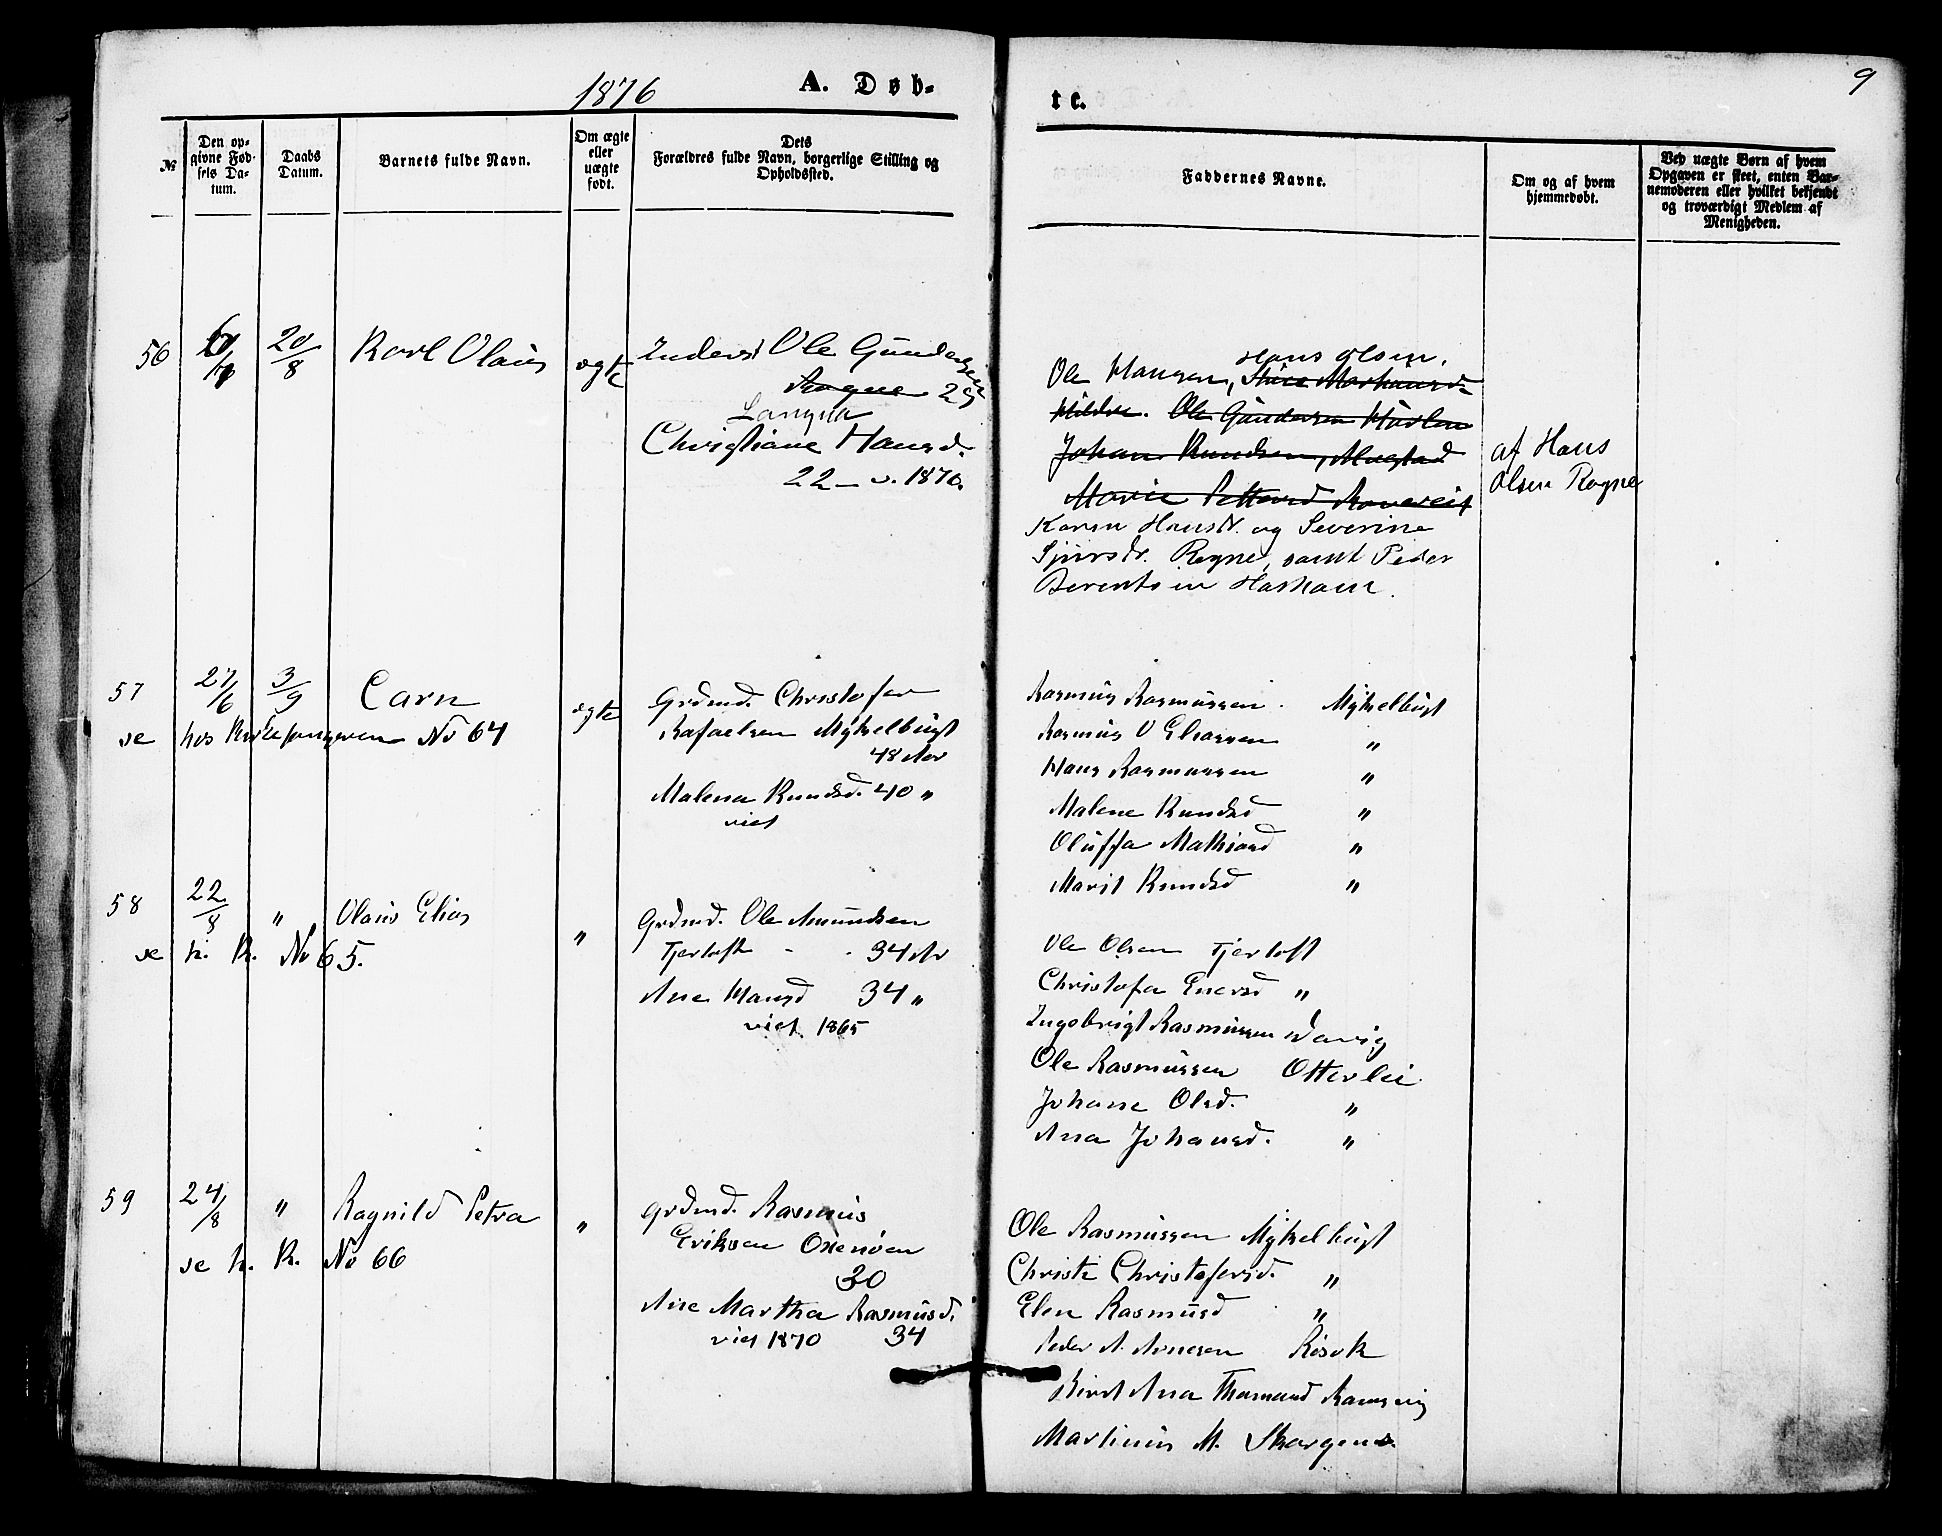 1876
A. Døb-
te.
9
№
Den op-
givne Fød-
sels Da-
tum.
Daabs
Datum.
Barnets fulde Navn.
Om ægte
eller
uægte
født.
Dets
Forældres fulde Navn, borgerlige Stilling og
Opholdssted.
Faddernes Navne.
Om og af hvem
hjemmedøbt.
Ved uægte Børn af hvem
Opgaven er skeet, enten Bar-
nemoderen eller hvilket bekjendt
og troværdigt Medlem af
Menigheden.
56
20/8
Karl Olaus
ægte
Inderst Ole Gundersen
Rogne 29
Longva
Christiane Hansd.
22 - v. 1870.
Hans Olsen.
Ole Hansen,
Ole Gundersen
Johan Knudsen,
Marie Petersd
Karen Hansdr. og Severine
Sjursdr. Rogne, samt Peder
Berentsen Hasham.
af Hans
Olsen Rogne
57
27/6
3/9
Carn
ægte
se hos No 64
Grdmd. Christofer
Rafaelsen Myhelbugt
48 Aar
Malena Knudsd. 40 "
viet
Rasmus Rasmussen Myhelbugt
Rasmus O Eliassen "
Hans Rasmussen "
Malene Knudsd "
Oluffa Mathiasd "
Marit Knudsd "
58
22/8
"
Olaus Elias
"
se h. K. No 65.
Grdmd. Ole Amundsen
Fjertoft 34 Ar
Ane Hansd 34 "
viet 1865
Ole Olsen Fjertoft
Christofa Enersd "
Ingebrigt Rasmussen
Ole Rasmussen Otterlei
Johane Olsd. "
Ana Johansd. "
59
24/8
"
Ragnild Petra
"
se h. K. No 66
Grdmd. Rasmus
Eriksen Oxenøen
30
Ane Martha Rasmusd.
viet 1870 34
Ole Rasmussen Myhelbugt
Christi Christofersd. "
Elen Rasmusd "
Peder A. Arnesen Røsok
Ana Thomasd
Martinus M. Skorgen